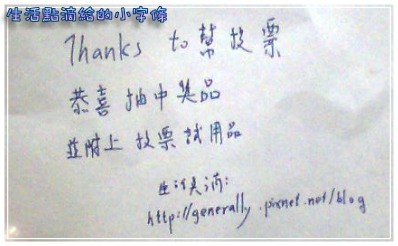 生活點滴給的小字條
Thanks to幫投票
恭喜抽中獎品
並附上投票試用品
生活點滴:
http://generally.pixnet.net/blog